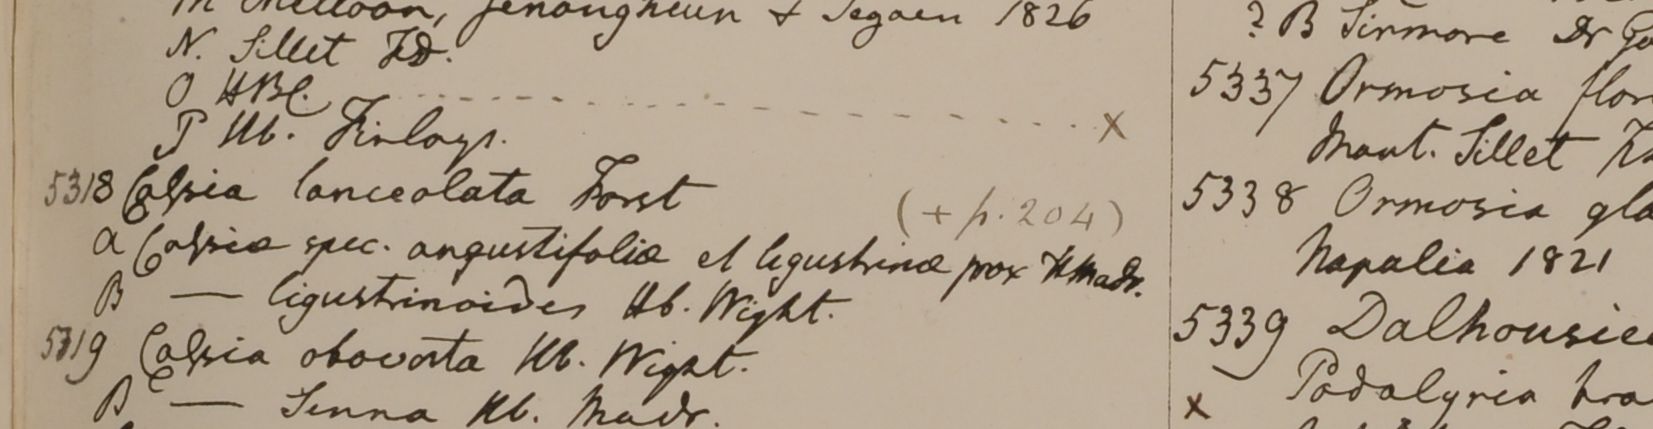 m Chelloon, Jenangheun & Segaen 1826
N. Sillet FD.
O HBC. x
P Hb. Finlays.
5318 Caſsia lanceolata Forst
(+ p. 204)
a Caſsiæ spec. angustifoliæ et ligustrinæ prox HMadr.
B — ligustrinoides Hb. Wight.
5319 Caſsia obovata Hb. Wight.
B — Senna Hb. Madr.
? B Sirmore Dr Go
5337 Ormosia flor
Mont. Sillet
5338 Ormosia gla
Napalia 1821
5339 Dalhousie
x Podalyria bra